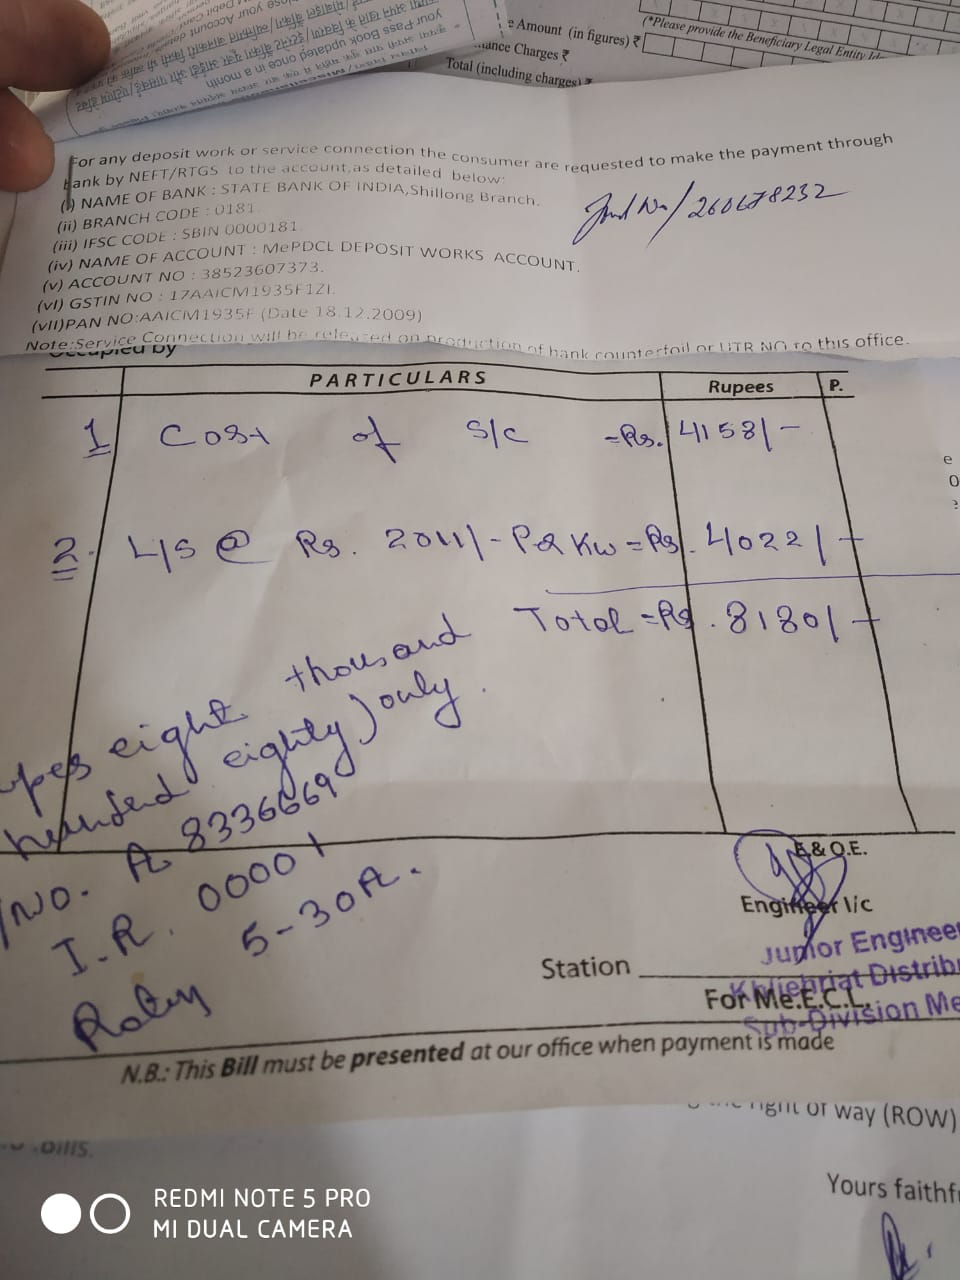 your Pass Book updated once in a month
e Amount (in figures) ₹
Charges ₹
Total (including charges) ₹
(*Please provide the Beneficiary Legal Entity
For any deposit work or service connection the consumer are requested to make the payment through
bank by NEFT/RTGS to the account,as detailed below:
(i) NAME OF BANK : STATE BANK OF INDIA,Shillong Branch.
(ii) BRANCH CODE : 0181.
(iii) IFSC CODE : SBIN 0000181.
(iv) NAME OF ACCOUNT : MePDCL DEPOSIT WORKS ACCOUNT.
(v) ACCOUNT NO : 38523607373.
(vI) GSTIN NO : 17AAICM1935F1ZI.
(vII)PAN NO:AAICM1935F (Date 18.12.2009)
Note:Service Connection will be released on production of bank counterfoil or UTR NO to this office.
260678232
Occupied by
PARTICULARS Rupees P.
1 Cost of S/C =Rs. 4158/-
2. L/S @ Rs. 2011/- Per Kw = Rs. 4022/-
Total = Rs. 8180/-
upees eight thousand
hundred eighty) only.
/NO. A 8336669
I.R. 00001
5-30A.
E.& O.E.
Engineer I/c
Junior Engineer
Station
Khliehriat Distrib
For Me.E.C.L.
Sub-Division Me
N.B.: This Bill must be presented at our office when payment is made
right of way (ROW)
Bills.
Yours faithf
REDMI NOTE 5 PRO
MI DUAL CAMERA